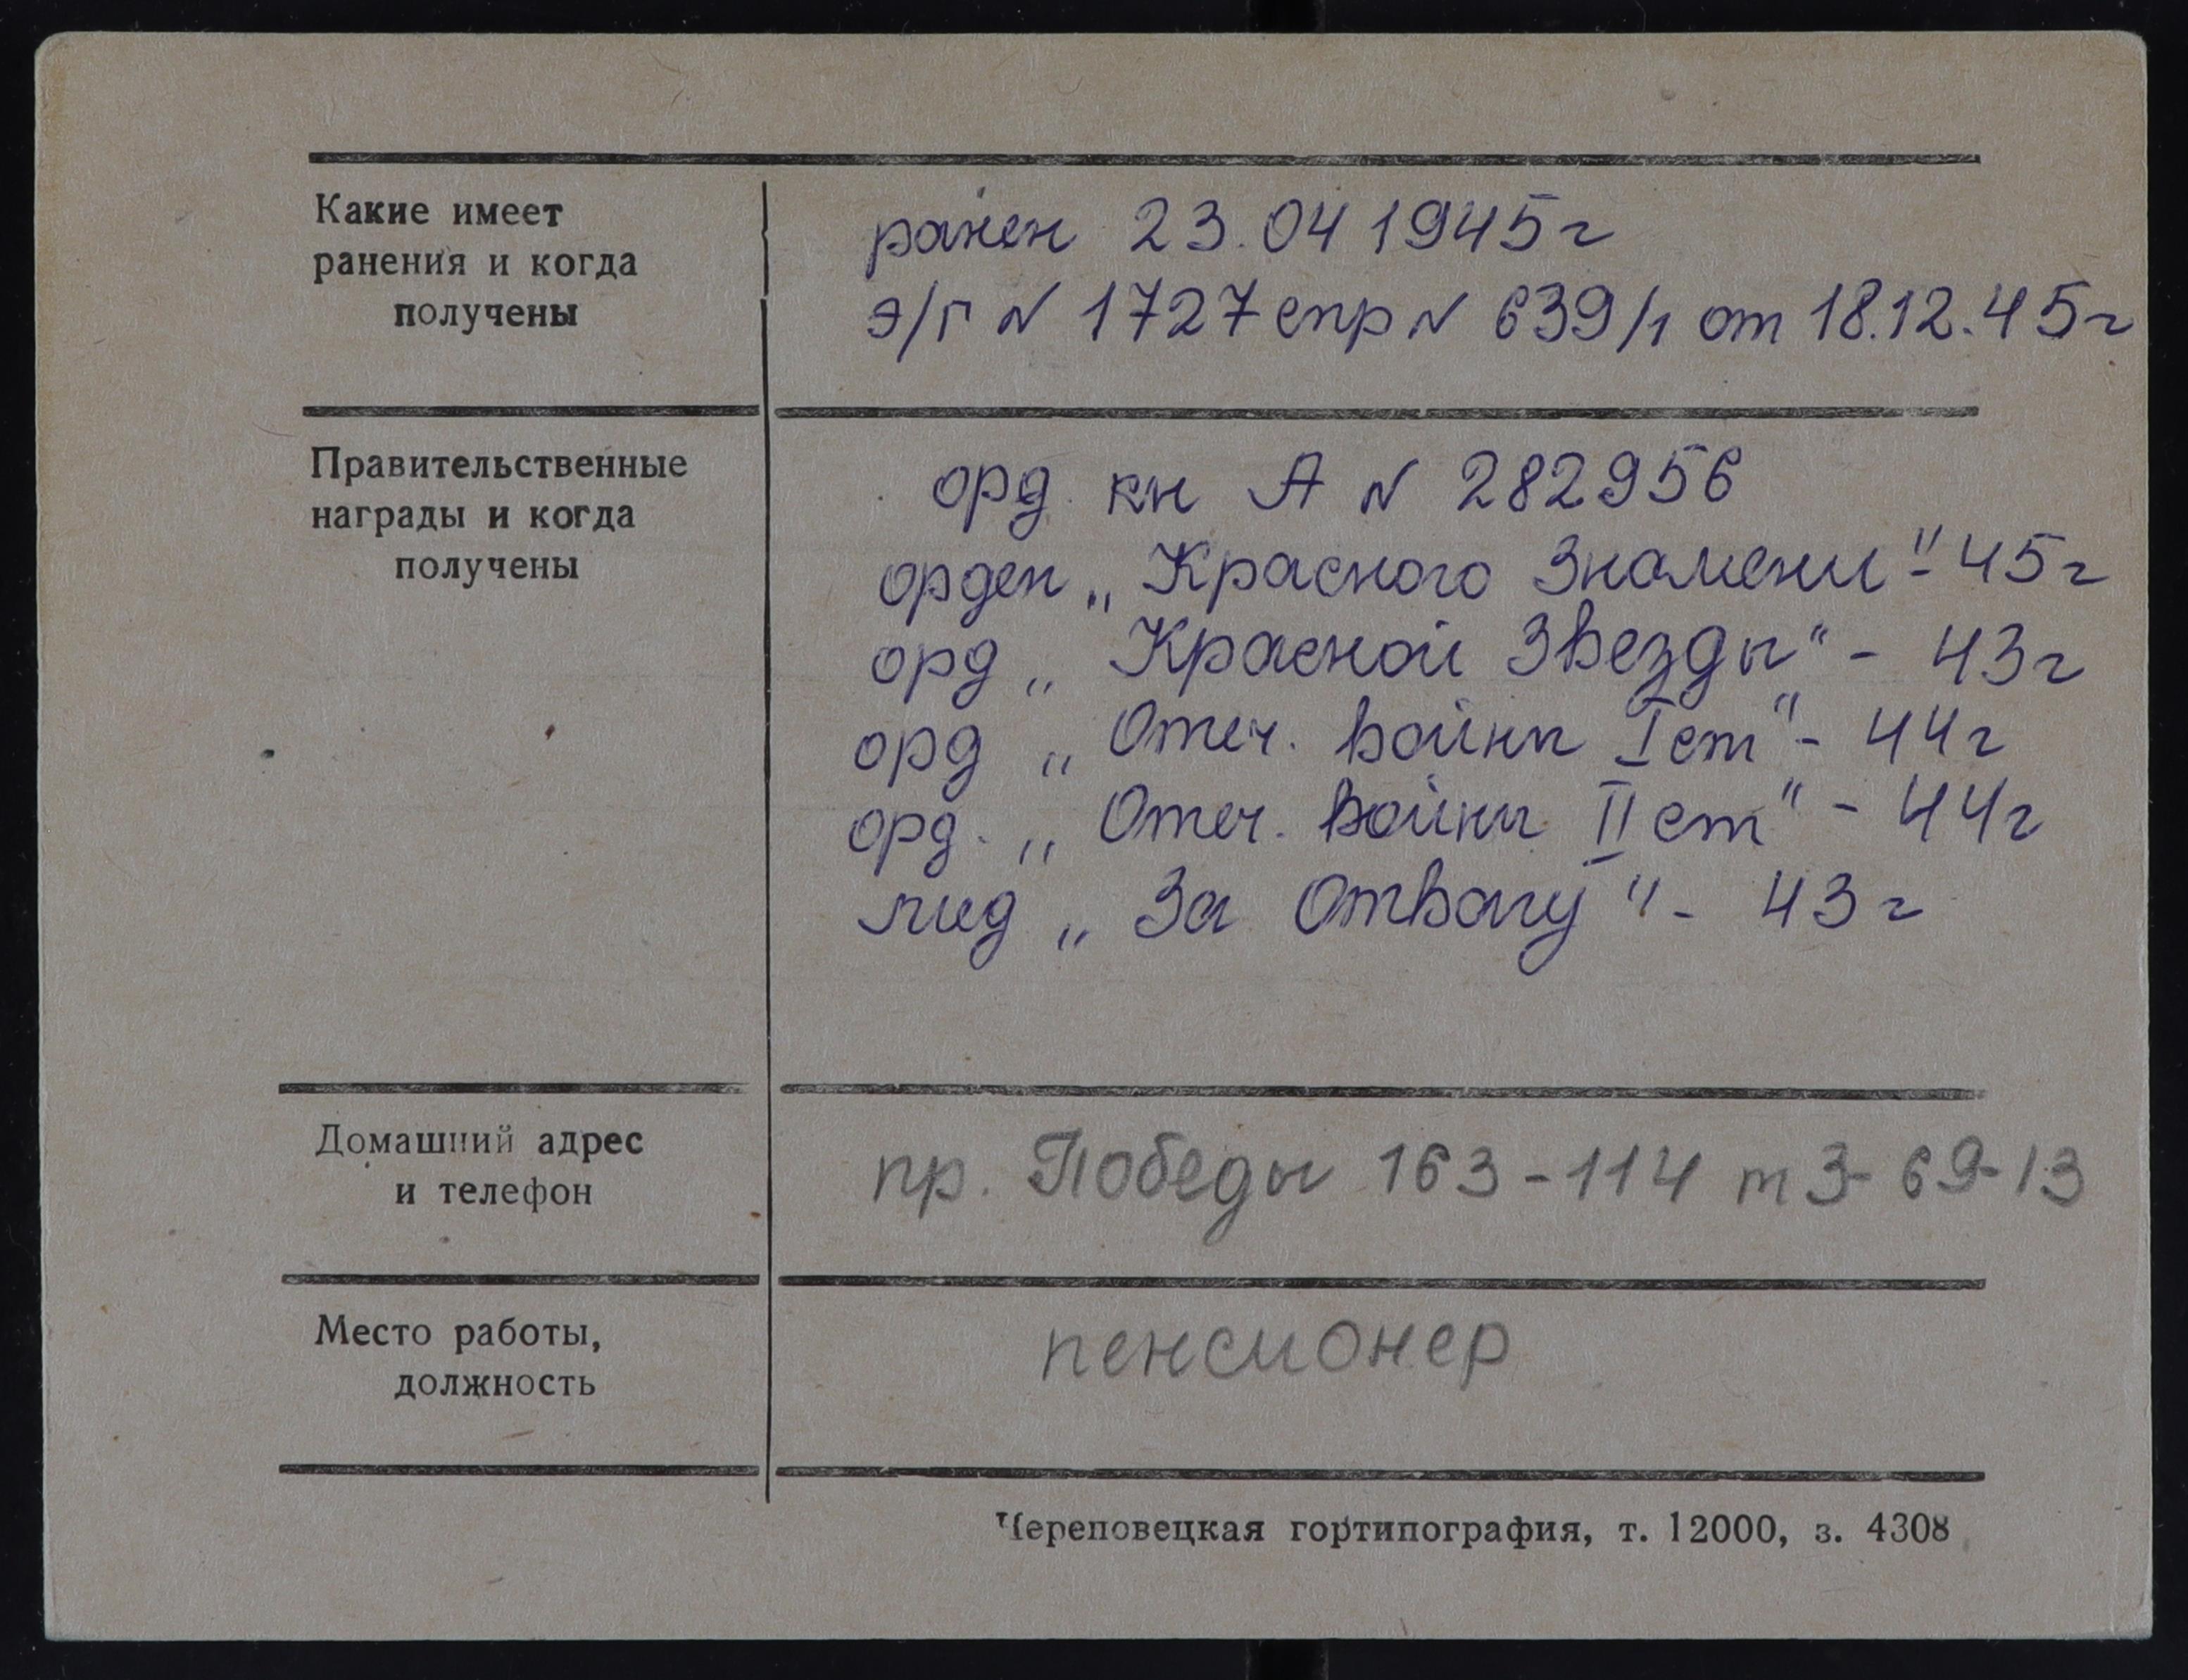 Какие имеет
ранения и когда
получены
ранен 23.04 1945г
э/г N 1727 спр N 639/1 от 18.12.45г
Правительственные
награды и когда
получены
орд. кн А N 282956
орден „Красного Знамени" - 45г
орд „Красной Звезды" - 43г
орд „Отеч. Войны I ст" - 44г
орд. „Отеч. Войны II ст" - 44г
мед „За Отвагу" - 43г
Домашний адрес
и телефон
пр. Победы 163-114 т 3-69-13
Место работы,
должность
пенсионер
Череповецкая гортипография, т. 12000, з. 4308